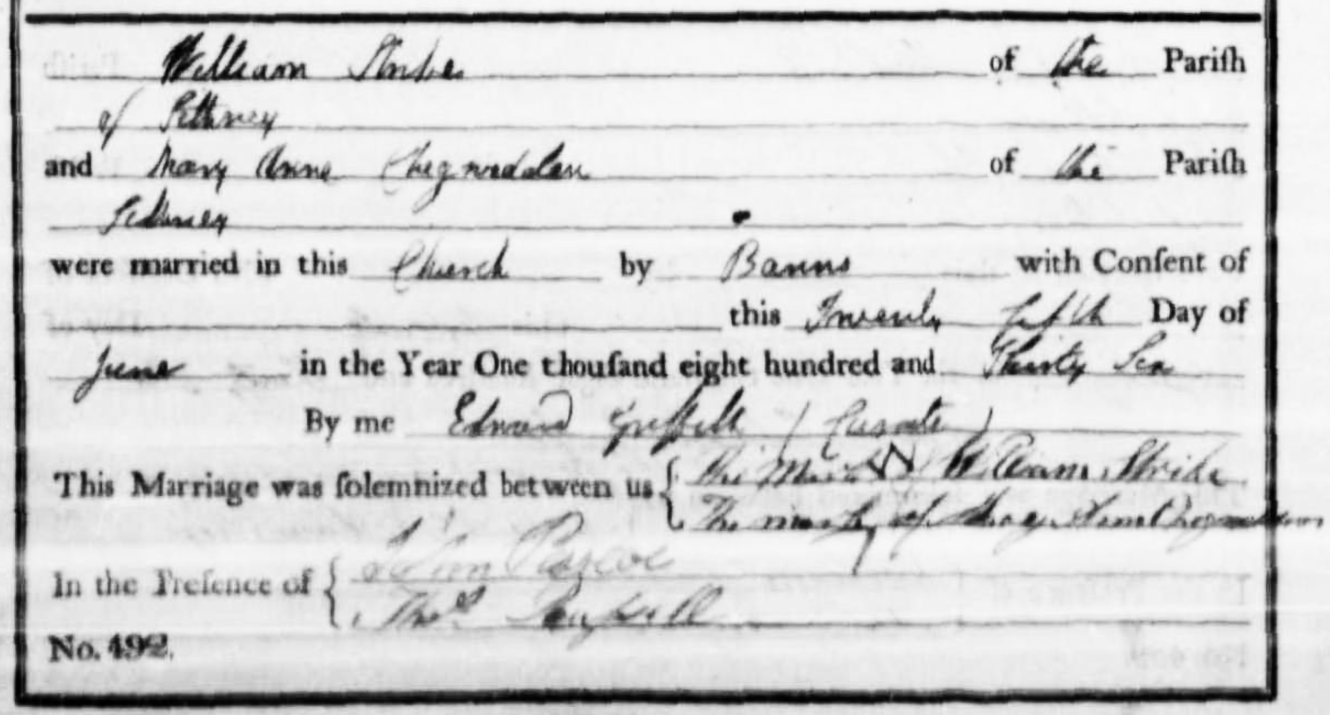 William Strike of the Pariſh
of Sithney
and Mary Anne Chegwidden of the Pariſh
Sithney
were married in this Church by Banns with Conſent of
this Twenty fifth Day of
June in the Year One thouſand eight hundred and Thirty Six
By me Edward Griffith (Curate)
This Marriage was ſolemnized between us { the Mark of William Strike
The mark of Mary Ann Chegwidden
In the Preſence of { John Pascoe
Thos.
No. 492.